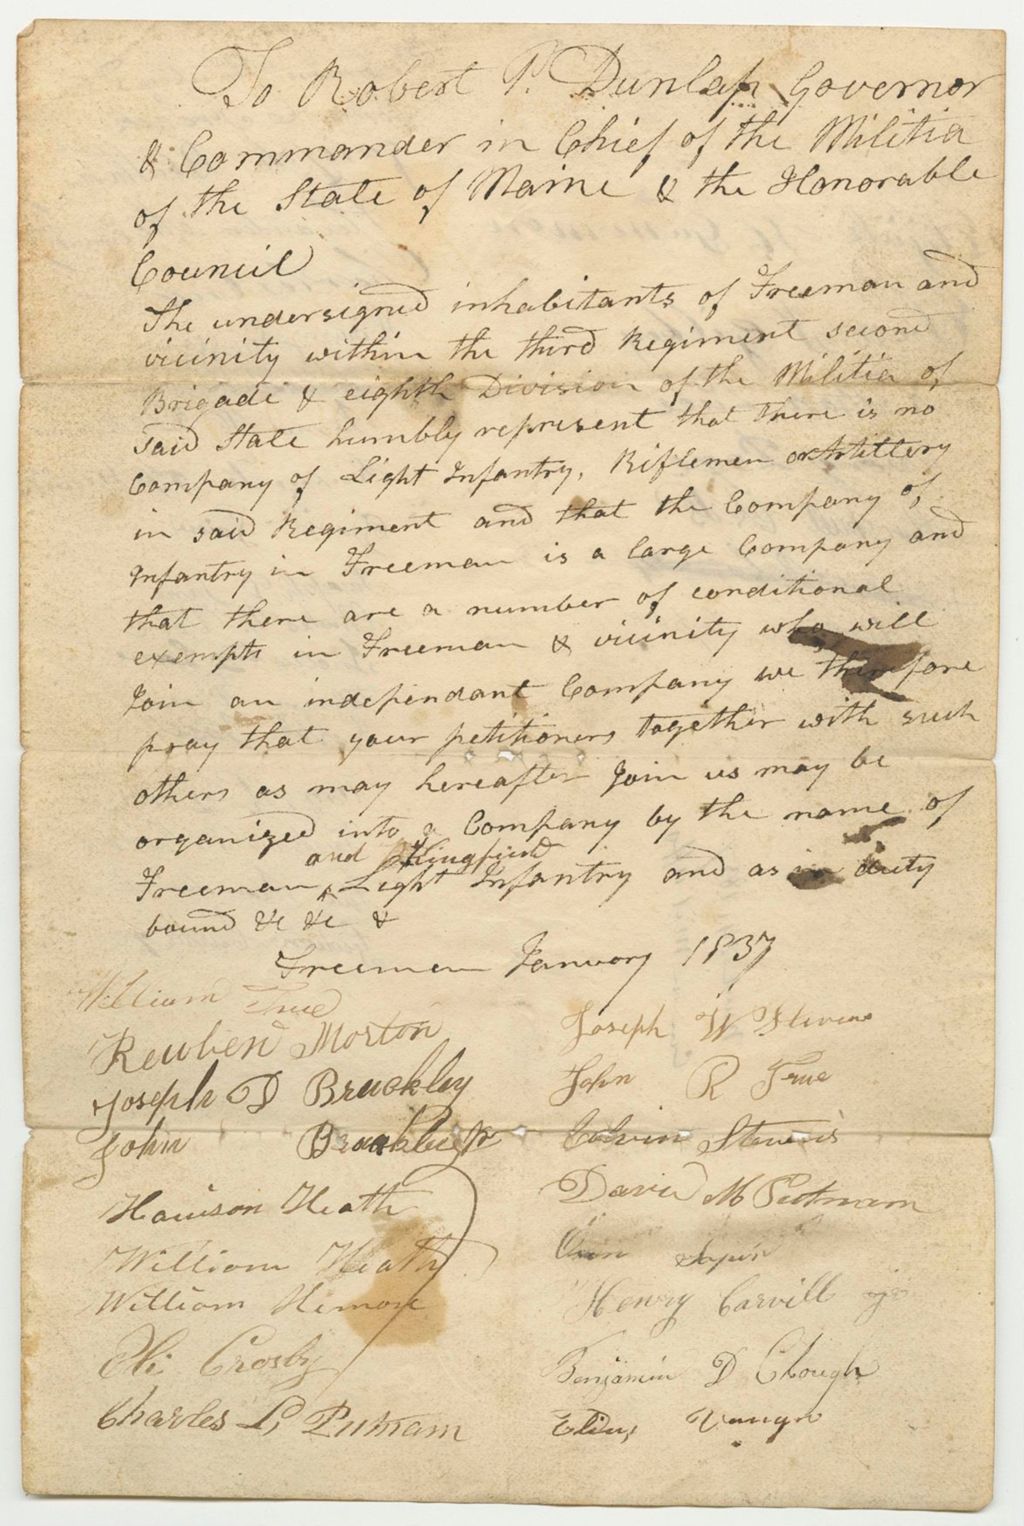 To Robert P. Dunlap Governor
& Commander in Chief of the Militia
of the State of Maine & the Honorable
Council
The undersigned inhabitants of Freeman and
vicinity within the third Regiment second
Brigade & eighth Division of the Militia of
said State humbly represent that there is no
Company of Light Infantry, Riflemen or Artillery
in said Regiment and that the Company of
Infantry in Freeman is a large Company and
that there are a number of conditional
exempts in Freeman & vicinity who will
Join an independant Company we therefore
pray that your petitioners together with such
others as may hereafter Join us may be
organized into a Company by the name of
and Kingfield
Freeman ^ Light Infantry and as in duty
bound &c &c &
Freeman January 1837
William True
Reuben Morton
Joseph D Brackley
John Brackley Jr
Harrison Heath
William Heath
William
Eli Crosby
Charles L. Putnam
Joseph W Stevens
John R True
Calvin Stevens
David M Putnam
Henry Carvill
Benjamin D Clough